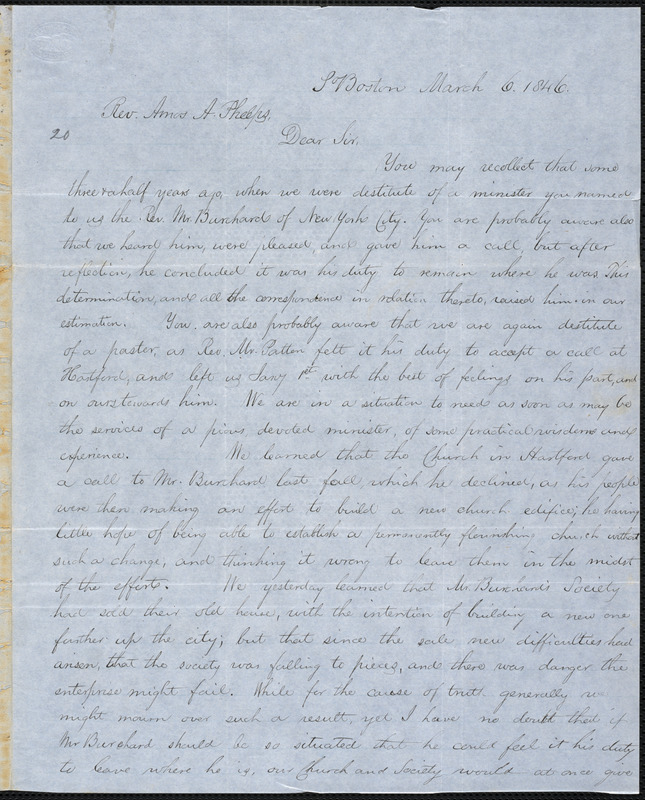 So Boston March 6. 1846.
Rev. Amos A. Phelps.
20
Dear Sir,
You may recollect that some
three & a half years ago, when we were destitute of a minister you named
to us the Rev. Mr. Burchard of New York City. You are probably aware also
that we heard him, were pleased, and gave him a call, but after
reflection, he concluded it was his duty to remain where he was. This
determination, and all the correspondence in relation thereto, raised him in our
estimation. You are also probably aware that we are again destitute
of a pastor, as Rev. Mr. Patton felt it his duty to accept a call at
Hartford, and left us Jany 1st with the best of feelings on his part, and
on ours towards him. We are in a situation to need as soon as may be
the services of a pious, devoted minister, of some practical wisdom and
experience. We learned that the Church in Hartford gave
a call to Mr. Burchard last fall, which he declined, as his people
were then making an effort to build a new church edifice; he having
little hope of being able to establish a permanently flourishing church without
such a change, and thinking it wrong to leave them in the midst
of the efforts. We yesterday learned that Mr. Burchard's Society
had sold their old house, with the intention of building a new one
farther up the city; but that since the sale new difficulties had
arisen, that the society was falling to pieces, and there was danger the
enterprise might fail. While for the cause of truth generally we
might mourn over such a result, yet I have no doubt that if
Mr Burchard should be so situated that he could feel it his duty
to leave where he is, our Church and Society would at once give